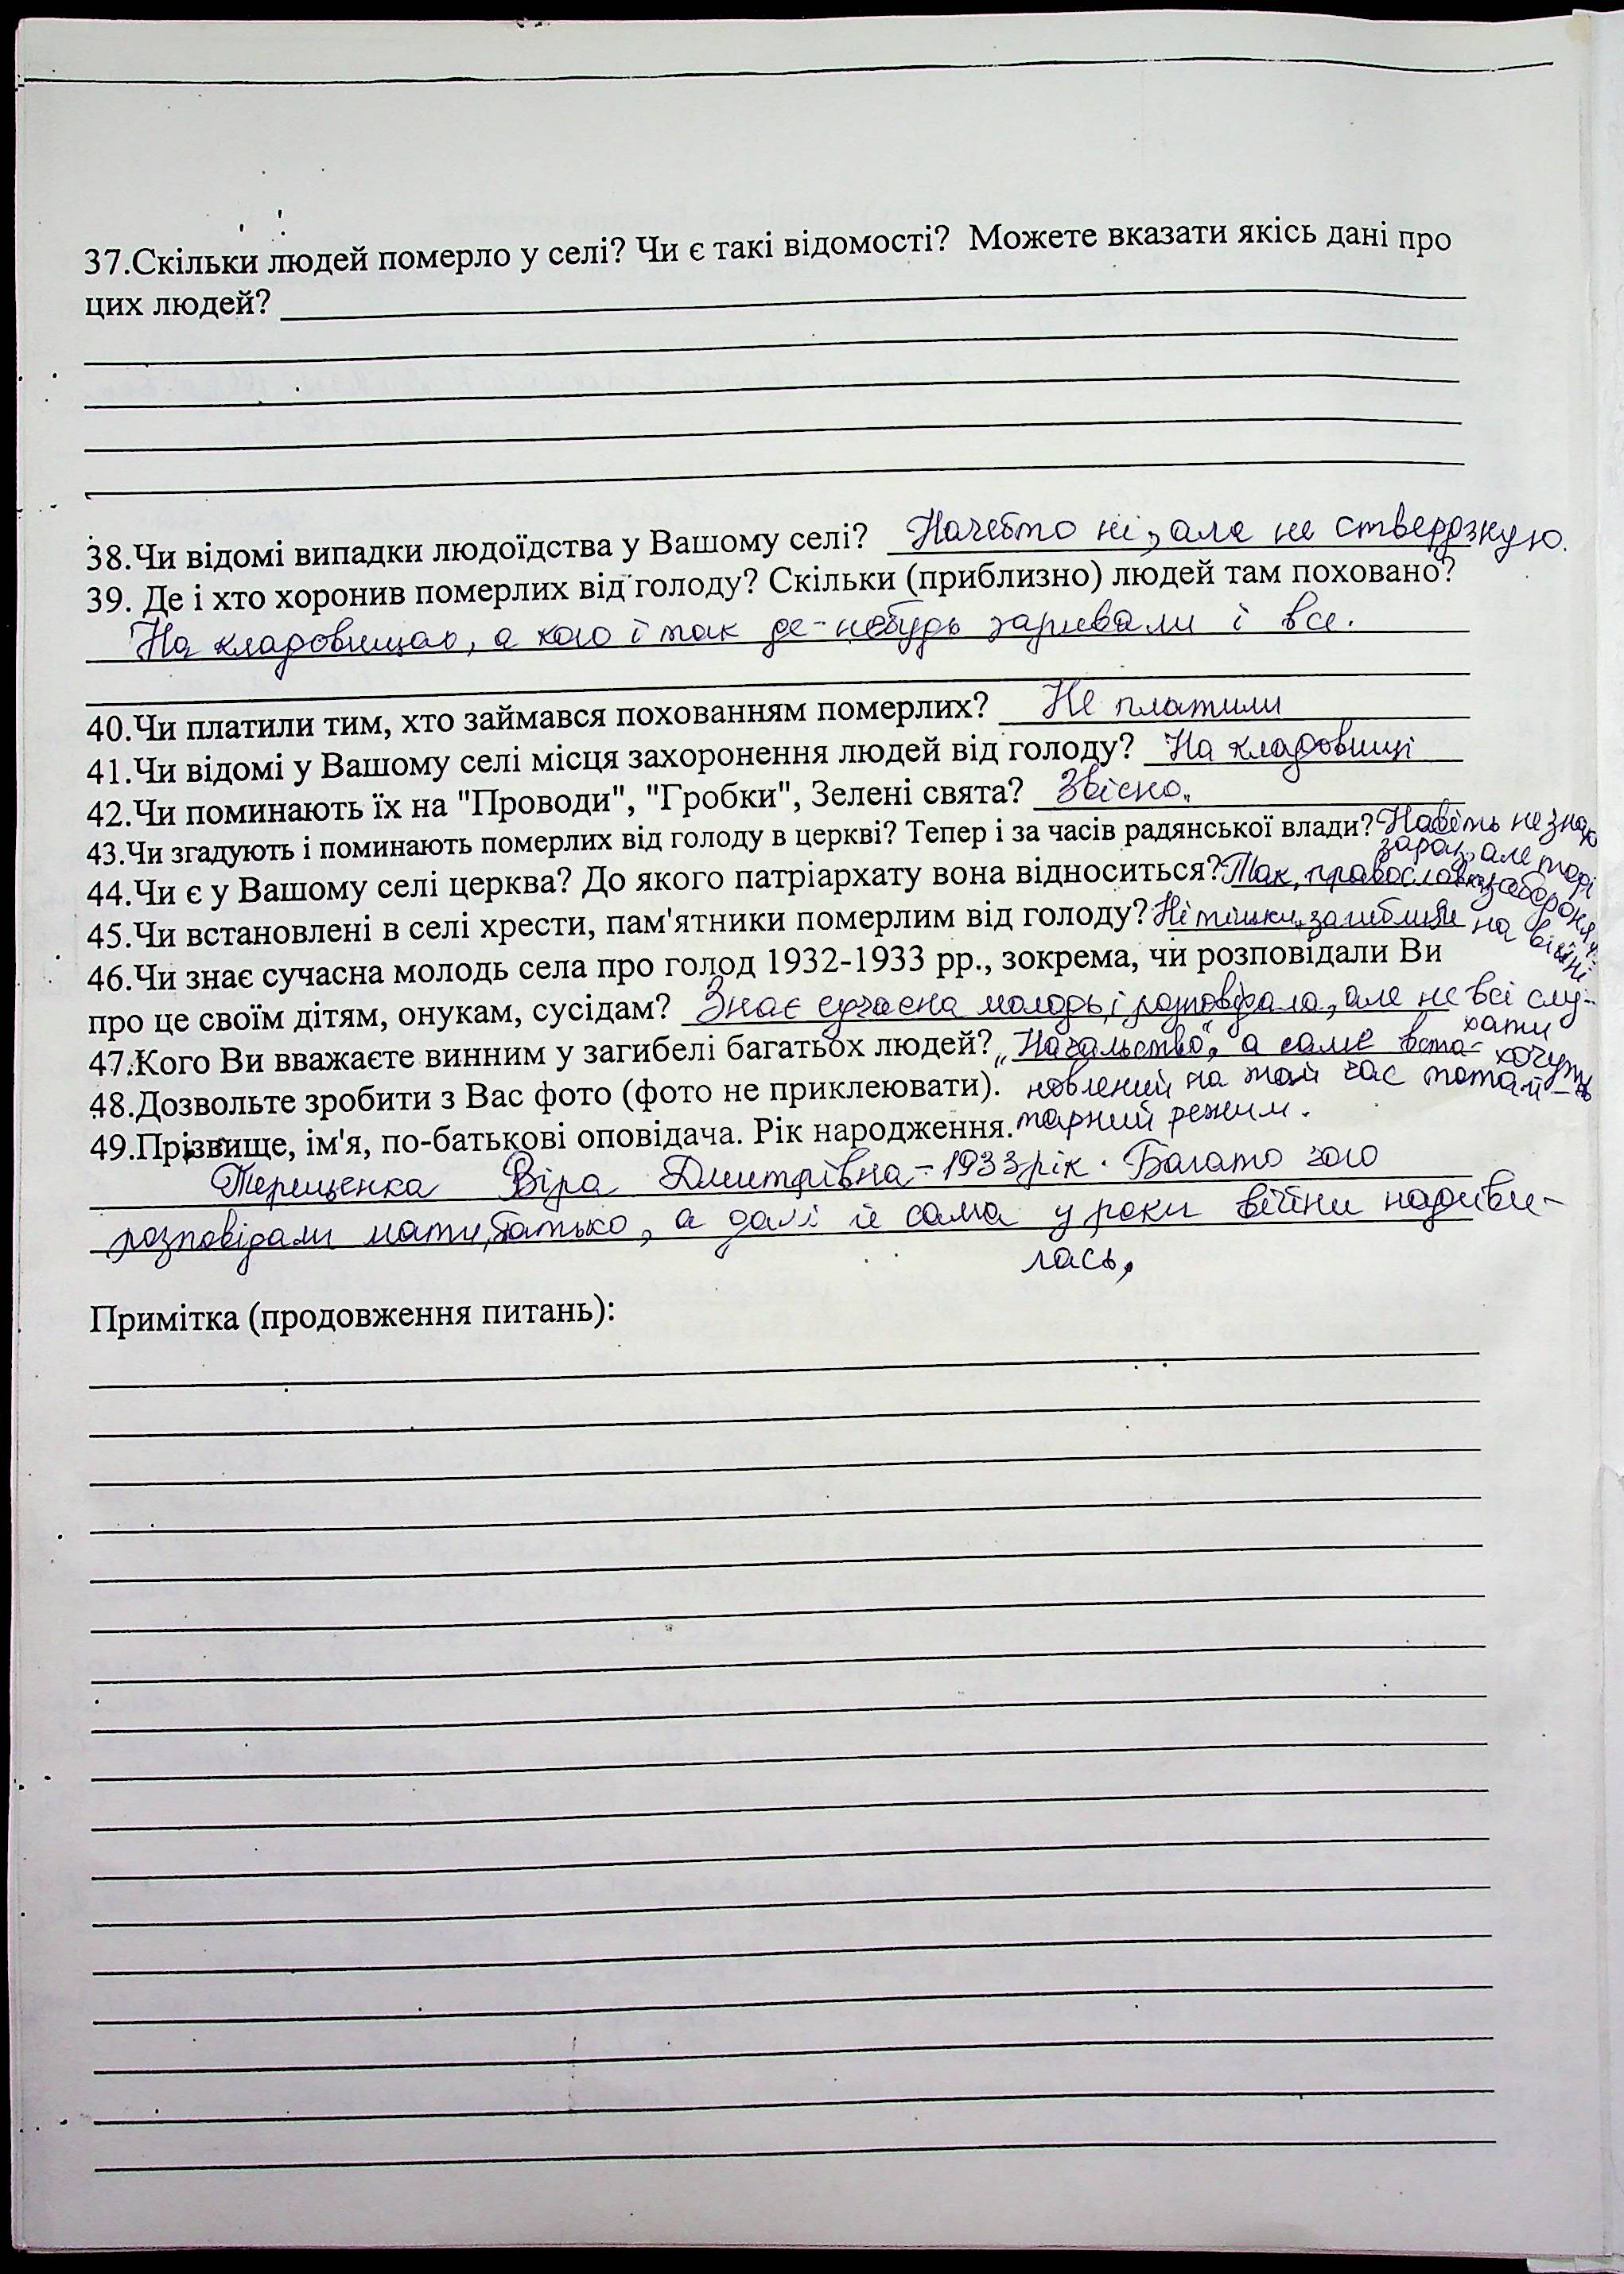 37.Скільки людей померло у селі? Чи є такі відомості? Можете вказати якісь дані про
цих людей?
38.Чи відомі випадки людоїдства у Вашому селі? Начебто ні, але не стверджую.
39. Де і хто хоронив померлих від голоду? Скільки (приблизно) людей там поховано?
На кладовищах, а кого і так де-небудь заривали і все.
40.Чи платили тим, хто займався похованням померлих? Не платили
41.Чи відомі у Вашому селі місця захоронення людей від голоду? На кладовищі
42.Чи поминають їх на "Проводи", "Гробки", Зелені свята? Звісно.
43.Чи згадують і поминають померлих від голоду в церкві? Тепер і за часів радянської влади? Навіть не знаю
зараз, але тоді
44.Чи є у Вашому селі церква? До якого патріархату вона відноситься? Так, православна
45.Чи встановлені в селі хрести, пам'ятники померлим від голоду? Ні тільки загиблим на війні
46.Чи знає сучасна молодь села про голод 1932-1933 рр., зокрема, чи розповідали Ви
про це своїм дітям, онукам, сусідам? Знає сучасна молодь, і розповідала, але не всі слу-
хати
хочуть
47.Кого Ви вважаєте винним у загибелі багатьох людей? „Начальство", а саме вста-
48.Дозвольте зробити з Вас фото (фото не приклеювати). новлений на той час тоталі-
49.Прізвище, ім'я, по-батькові оповідача. Рік народження. тарний режим.
Терещенка Віра Дмитрівна - 1933 рік. Багато чого
розповідали мати, батько, а далі й сама у роки війни надиви-
лась.
Примітка (продовження питань):